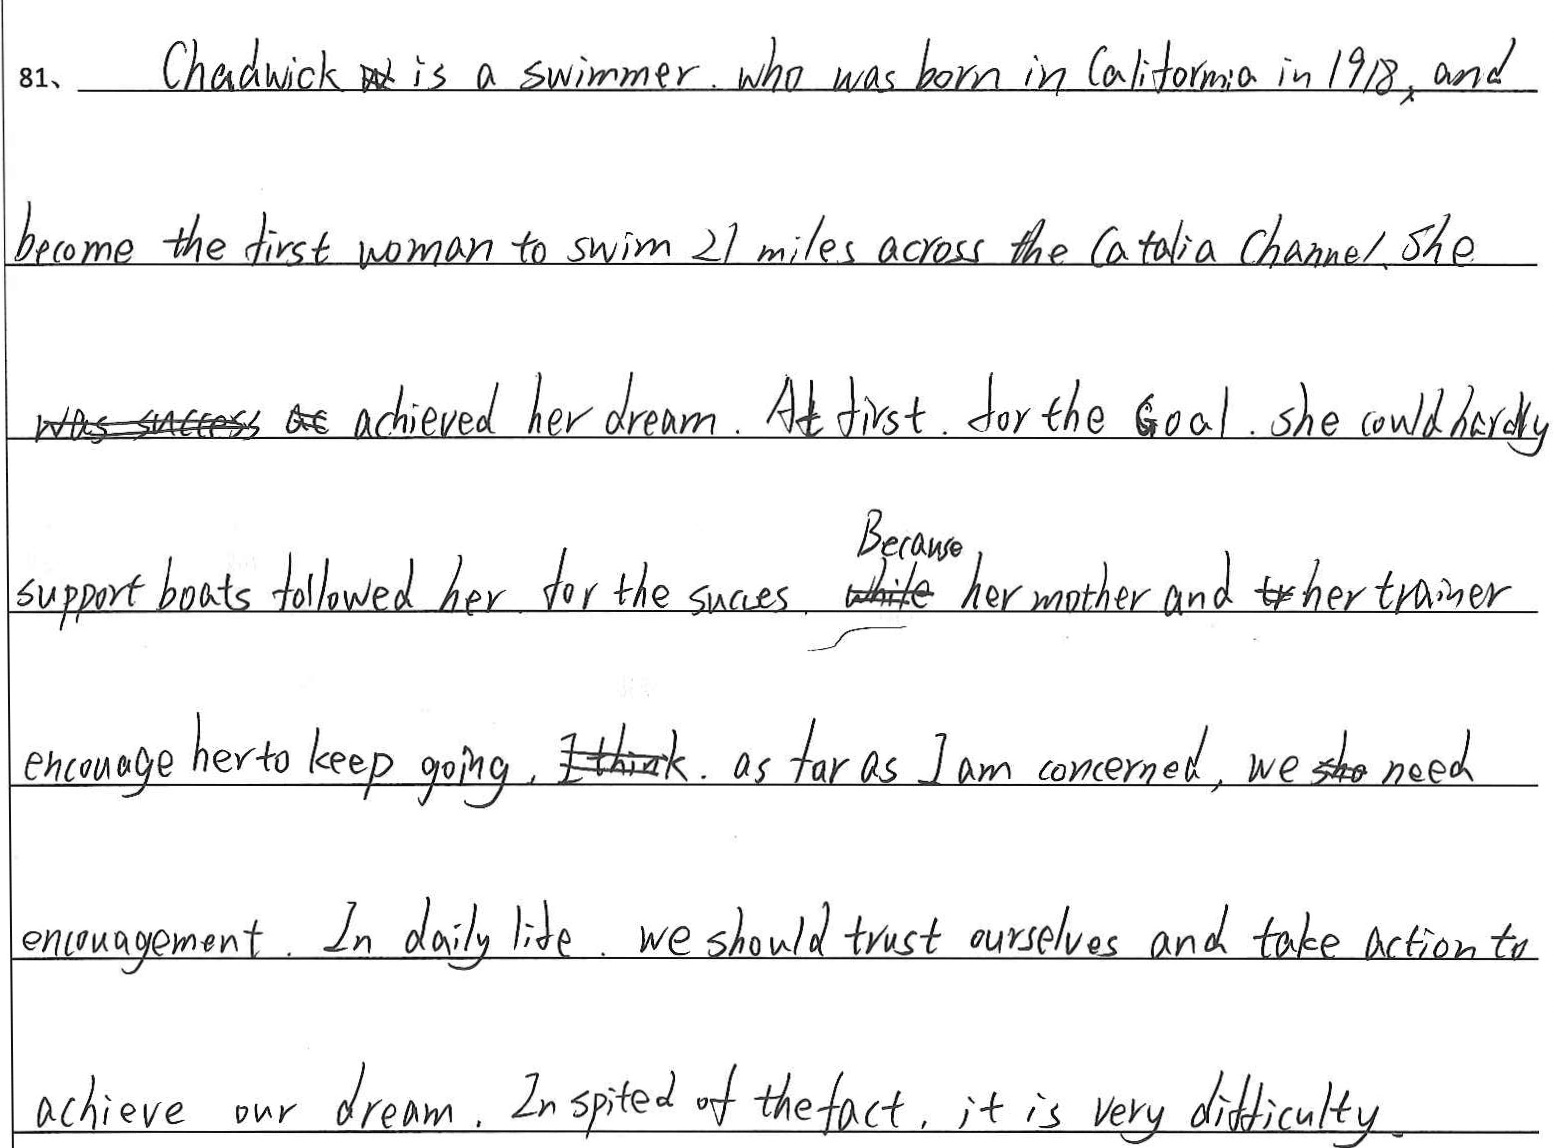 81、 Chadwick is a swimmer. who was born in California in 1918, and
become the first woman to swim 21 miles across the Catalia Channel. She
was success achieved her dream. At first. for the Goal. she could hardly
support boats followed her. for the succes. while Because her mother and tr her trainer
encouage her to keep going. I think. as far as I am concerned, we sho need
encouagement. In daily life. we should trust ourselves and take action to
achieve our dream. In spited of the fact. it is very difficulty.